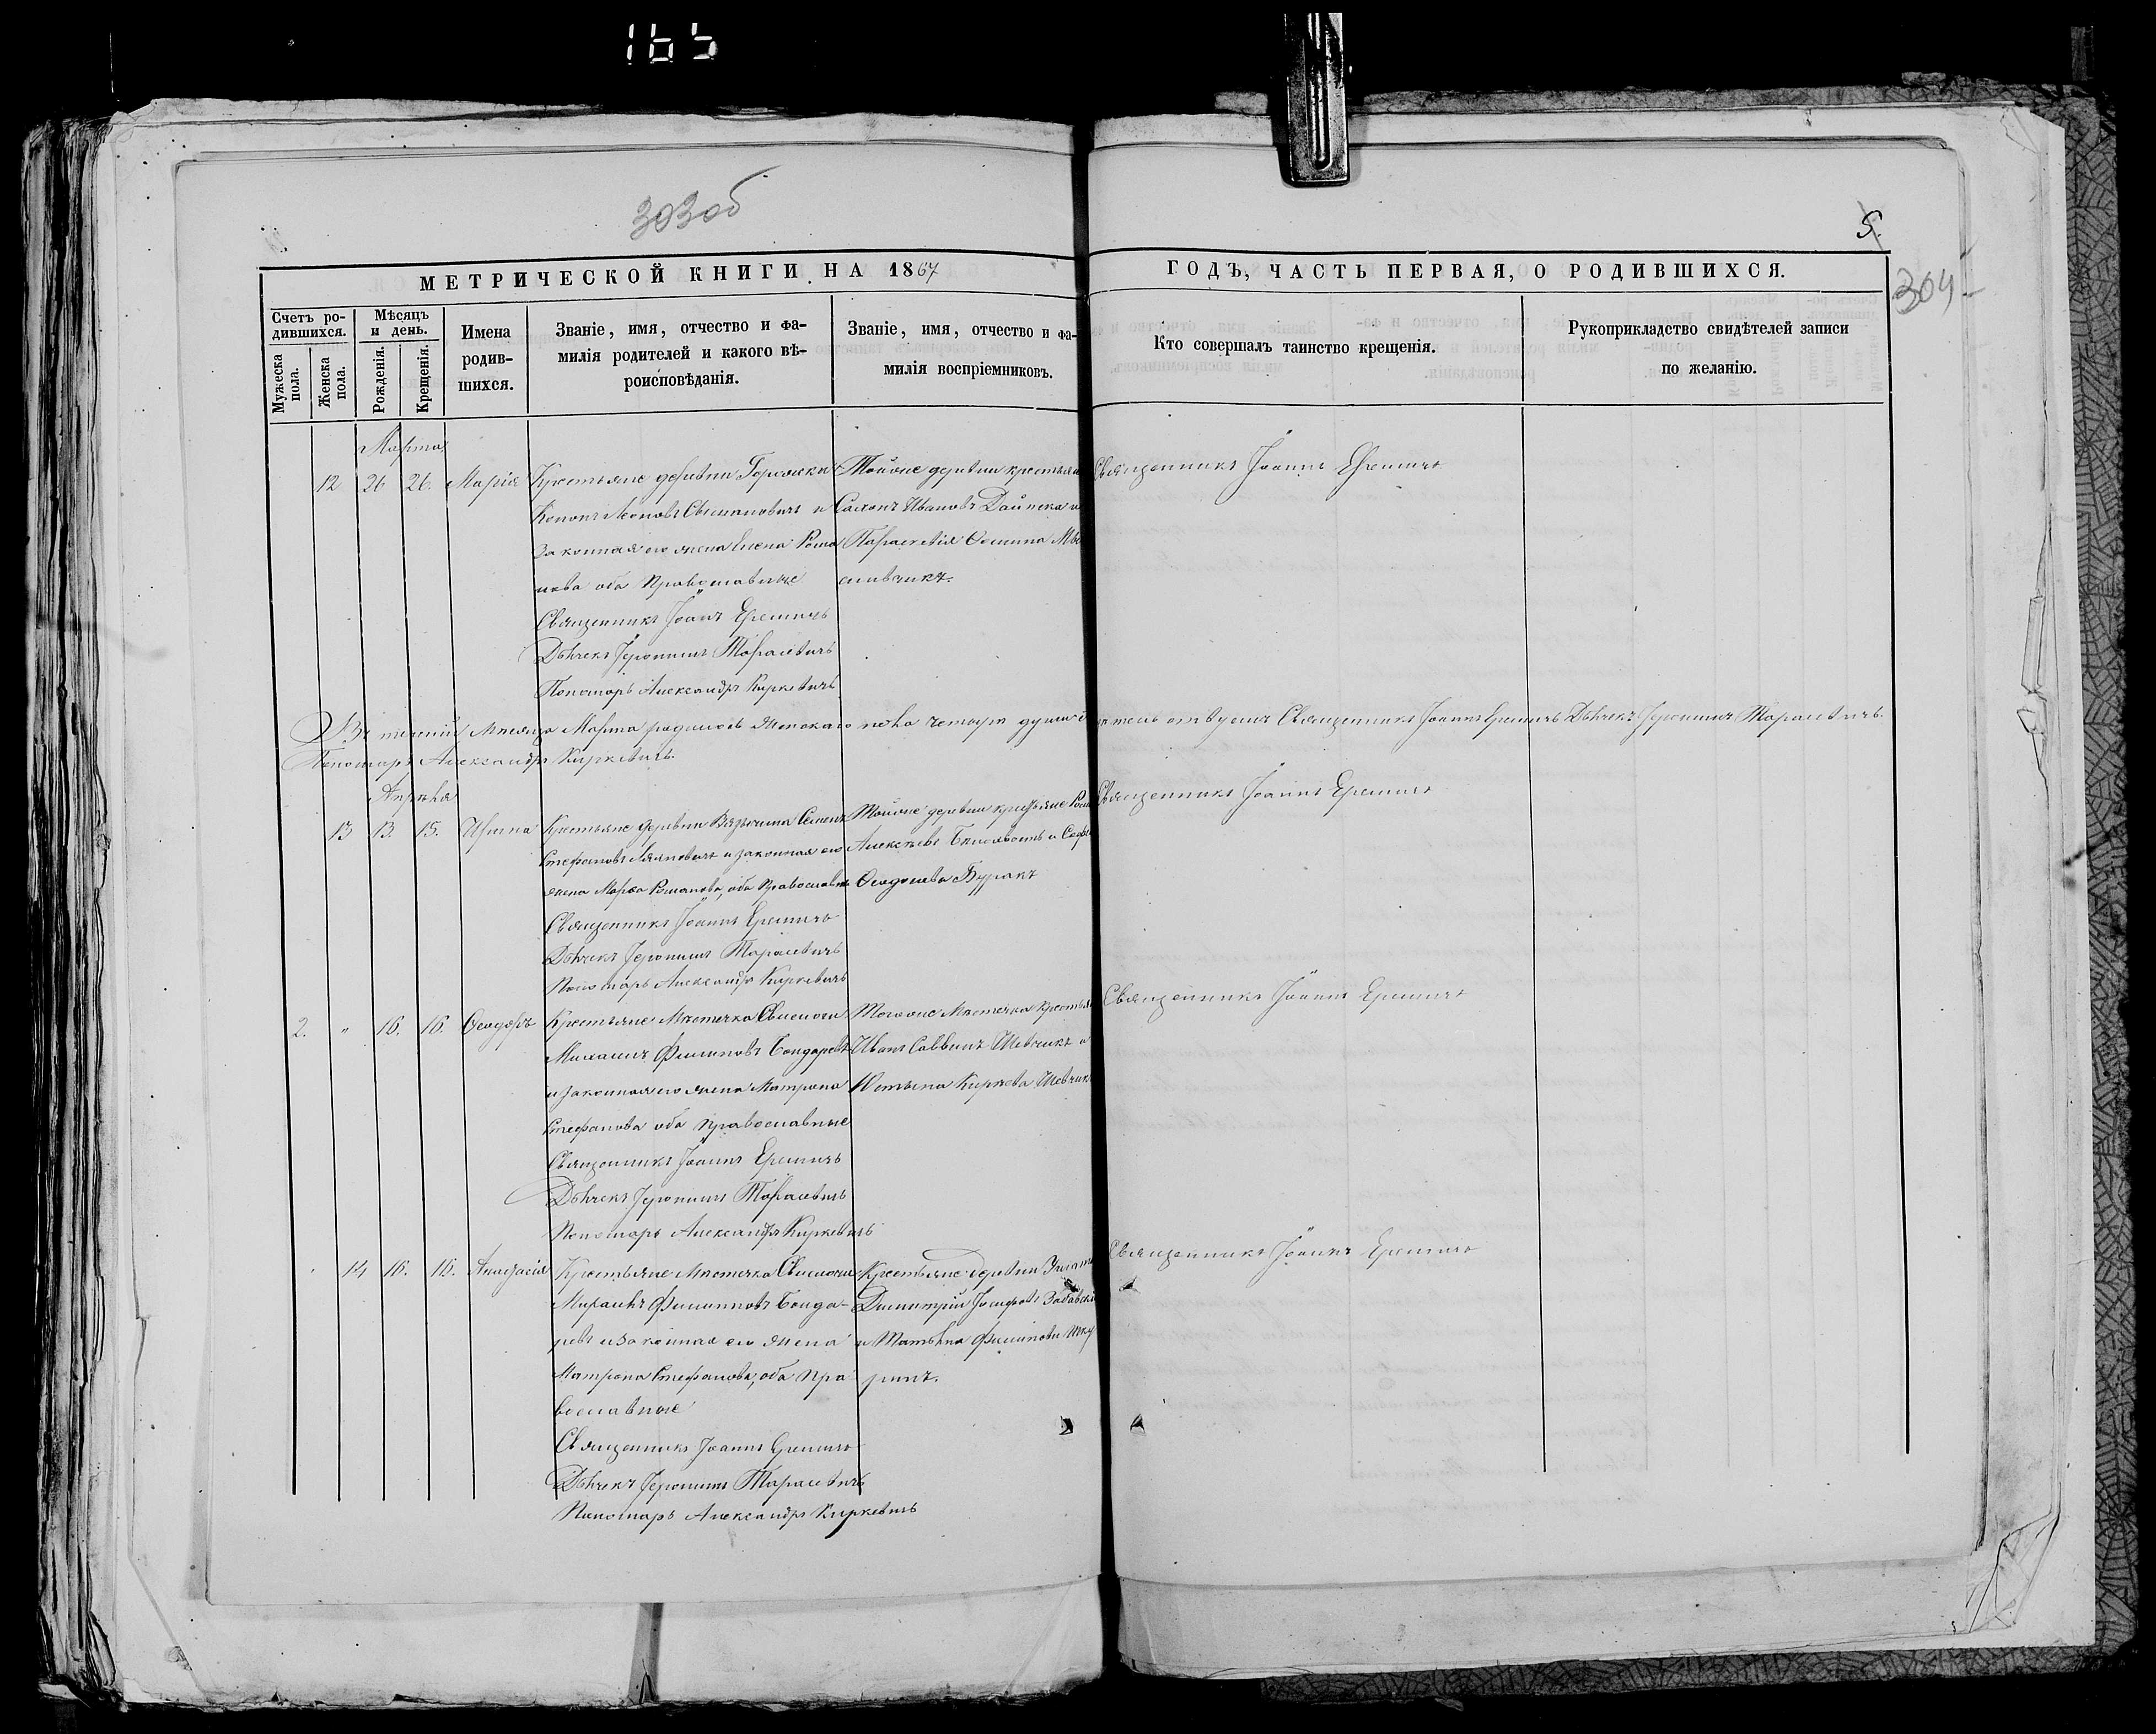 165
303об
5.
304
МЕТРИЧЕСКОЙ КНИГИ НА 1867
ГОДЪ, ЧАСТЬ ПЕРВАЯ, О РОДИВШИХСЯ.
Счетъ ро-
дившихся.
Мужеска
пола.
Женска
пола.
Мѣсяцъ
и день.
Рожденія.
Крещенія.
Имена
родив-
шихся.
Званіе, имя, отчество и фа-
милія родителей и какого вѣ-
роисповѣданія.
Званіе, имя, отчество и фа-
милія воспріемниковъ.
Кто совершалъ таинство крещенія.
Рукоприкладство свидѣтелей записи
по желанію.
Марта
12 26 26. Марія
Крестьяне деревни
и
законная его жена Елена Рома
нова оба православные
Священникъ Іоаннъ Еремичъ
Дьячекъ Іеронимъ Тарасевичъ
Пономарь Александръ Киркевичъ
Тойже деревни крестьяне
Иванов Дайнека и
Параскевія
Священникъ Іоаннъ Еремичъ
В теченіи Мѣсяца Марта родилось женскаго пола четыри души
Священникъ Іоаннъ Еремичъ Дьячекъ Іеронимъ Тарасевичъ.
Пономарь Александръ Киркевичъ.
Апрѣля
13 13 15. Ирина
Крестьяне деревни Семенъ
Стефановъ и законная его
жена Марѳа Романова, оба православные
Священникъ Іоаннъ Еремичъ
Дьячекъ Іеронимъ Тарасевичъ
Пономарь Александръ Киркевичъ
Тойже деревни крестьяне
Алексѣевъ
Ѳеодосіева Буракъ
Священникъ Іоаннъ Еремичъ
2. " 16. 16. Ѳеодоръ
Крестьяне Мѣстечка Свислочи
Михаилъ Филиповъ Бондаревъ
и законная его жена Матрона
Стефанова оба православные
Священникъ Іоаннъ Еремичъ
Дьячекъ Іеронимъ Тарасевичъ
Пономарь Александръ Киркевичъ
Тогоже Мѣстечка крестьяне
Иванъ Саввинъ Шевчикъ и
Киреева Шевчикъ
Священникъ Іоаннъ Еремичъ
14 16. 16. Анастасія
Крестьяне Мѣстечка Свислочи
Михаилъ Филипповъ Бонда-
ревъ и законная его жена
Матрона Стефанова, оба пра
вославные
Священникъ Іоаннъ Еремичъ
Дьячекъ Іеронимъ Тарасевичъ
Пономарь Александръ Киркевичъ
Крестьяне деревни
Димитрій Іосифовъ
и Татьяна Филипова
Священникъ Іоаннъ Еремичъ